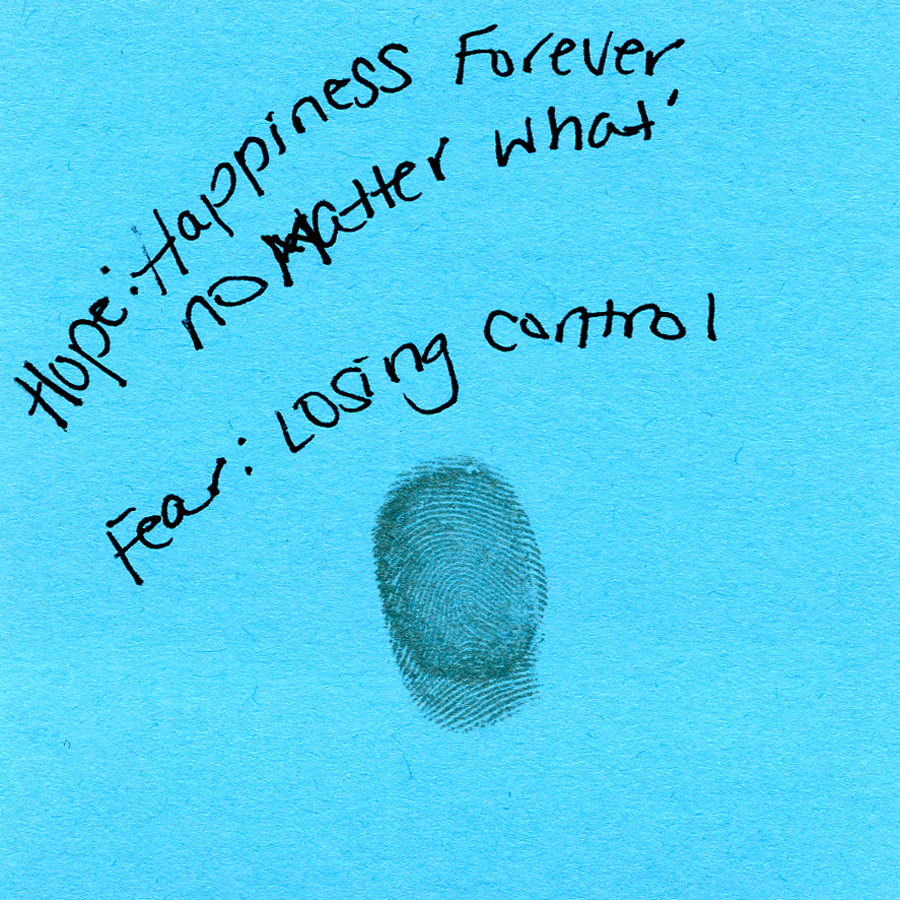 Hope: Happiness Forever
no Matter what
Fear: Losing control